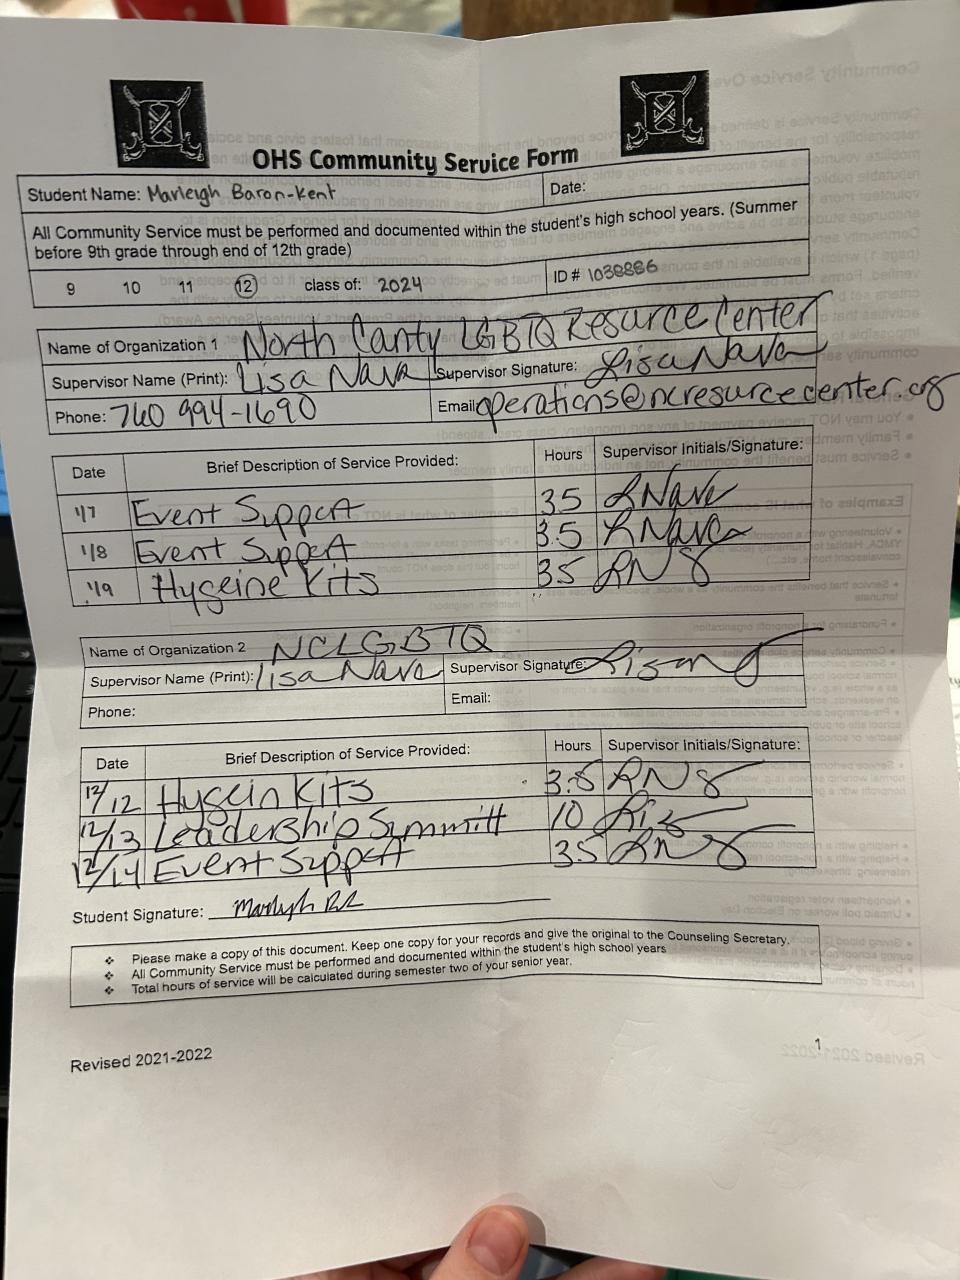 OHS Community Service Form
Student Name: Marleigh Baron-Kent Date:
All Community Service must be performed and documented within the student's high school years. (Summer
before 9th grade through end of 12th grade)
9 10 11 12 class of: 2024 ID # 1038886
Name of Organization 1 North Canty LGBTQ Resurce Center
Supervisor Name (Print): Lisa Nava Supervisor Signature: Lisa Nava
Phone: 760 994-1690 Email: operations@ncresourcecenter.org
Date Brief Description of Service Provided: Hours Supervisor Initials/Signature:
1/7 Event Support 3.5 LNava
1/8 Event Support 3.5 LNava
1/9 Hygeine Kits 3.5 LN
Name of Organization 2 NCLGBTQ
Supervisor Name (Print): Lisa Nava Supervisor Signature:
Phone: Email:
Date Brief Description of Service Provided: Hours Supervisor Initials/Signature:
12/12 Hygein Kits 3.5 LN
12/13 Leadership Summitt 10
12/14 Event Support 3.5 LN
Student Signature:
❖ Please make a copy of this document. Keep one copy for your records and give the original to the Counseling Secretary.
❖ All Community Service must be performed and documented within the student's high school years
❖ Total hours of service will be calculated during semester two of your senior year.
1
Revised 2021-2022